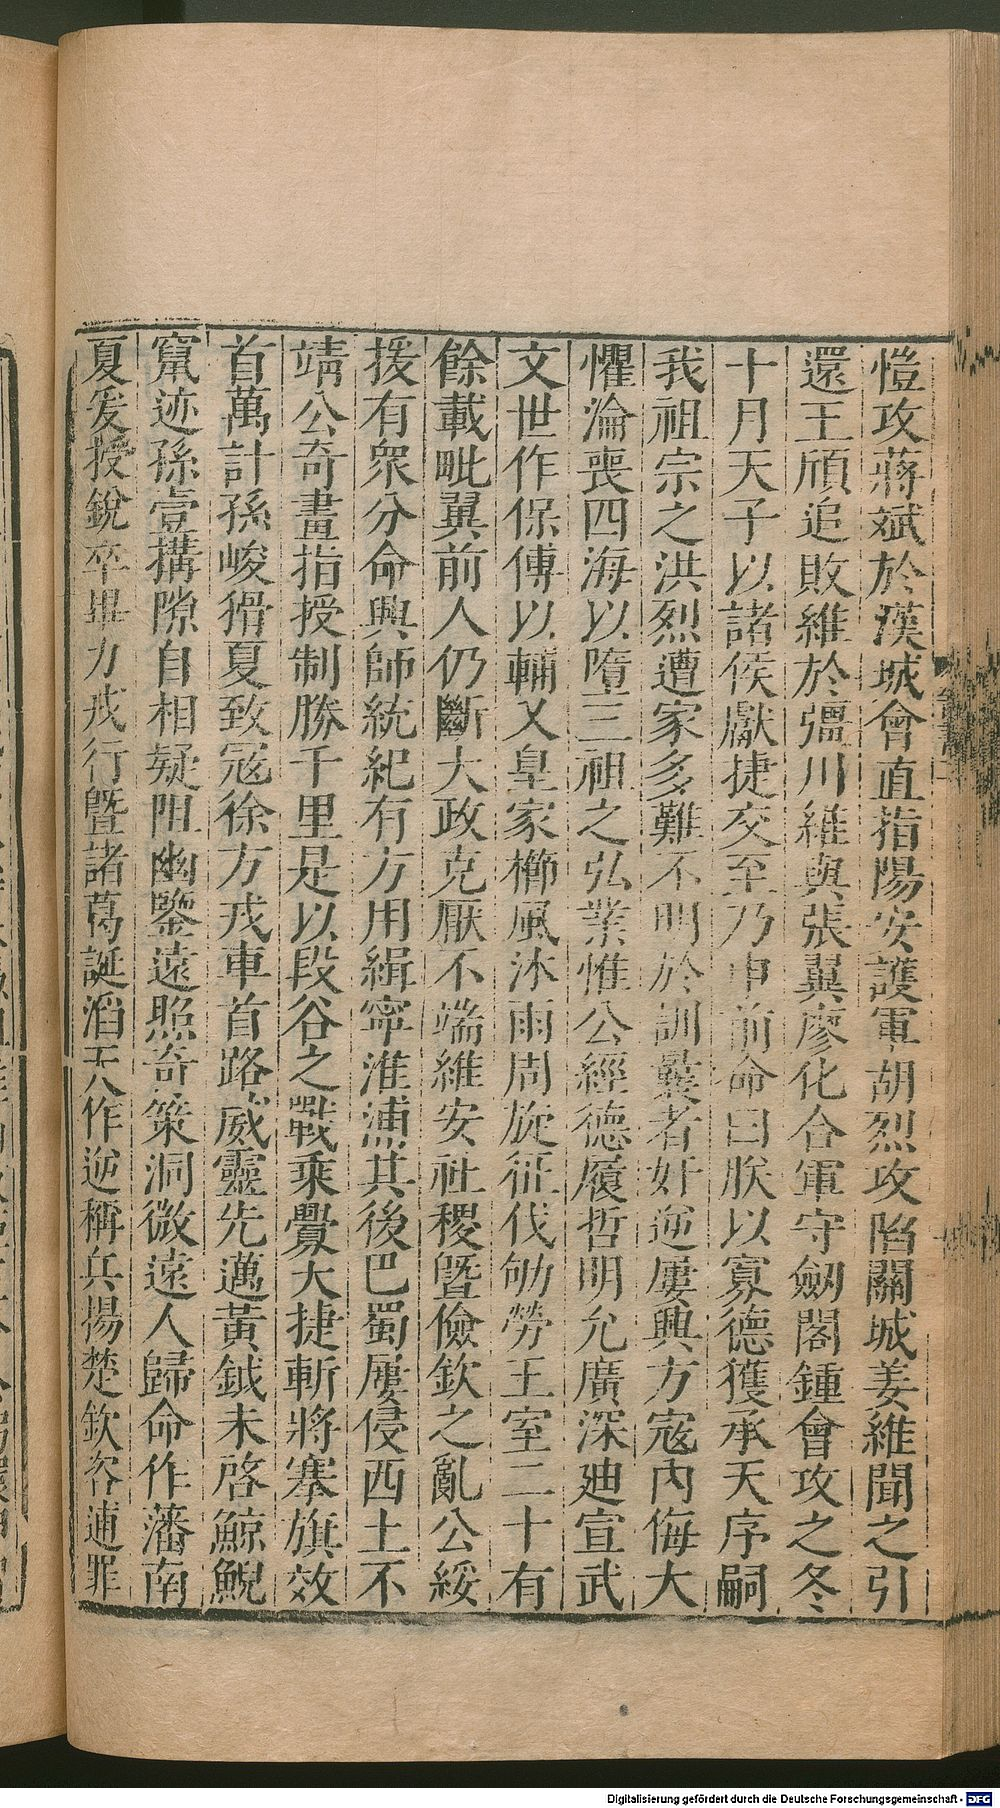 愷攻蔣斌於漢城會直指陽安護軍胡烈攻陷關城姜維聞之引
還王頎追敗維於彊川維與張翼廖化合軍守劒閣鍾會攻之冬
十月天子以諸侯獻捷交至乃申前命曰朕以寡德獲承天序嗣
我祖宗之洪烈遭家多難不明於訓曩者奸逆屢興方寇內侮大
懼淪喪四海以隳三祖之弘業惟公經德履哲明允廣深廸宣武
文世作保傅以輔乂皇家櫛風沐雨周旋征伐劬勞王室二十有
餘載毗翼前人仍斷大政克厭不端維安社稷曁儉欽之亂公綏
援有衆分命興師統紀有方用緝寧淮浦其後巴蜀屢侵西土不
靖公奇畫指授制勝千里是以段谷之戰乘釁大捷斬將搴旗效
首萬計孫峻猾夏致寇徐方戎車首路威靈先邁黃鉞未啓鯨鯢
竄迹孫壹搆隙自相疑阻幽鑒遠照奇策洞微遠人歸命作藩南
夏爰授銳卒畢力戎行曁諸葛誕滔天作逆稱兵揚楚欽咨逋罪
Digitalisierung gefördert durch die Deutsche Forschungsgemeinschaft - DFG